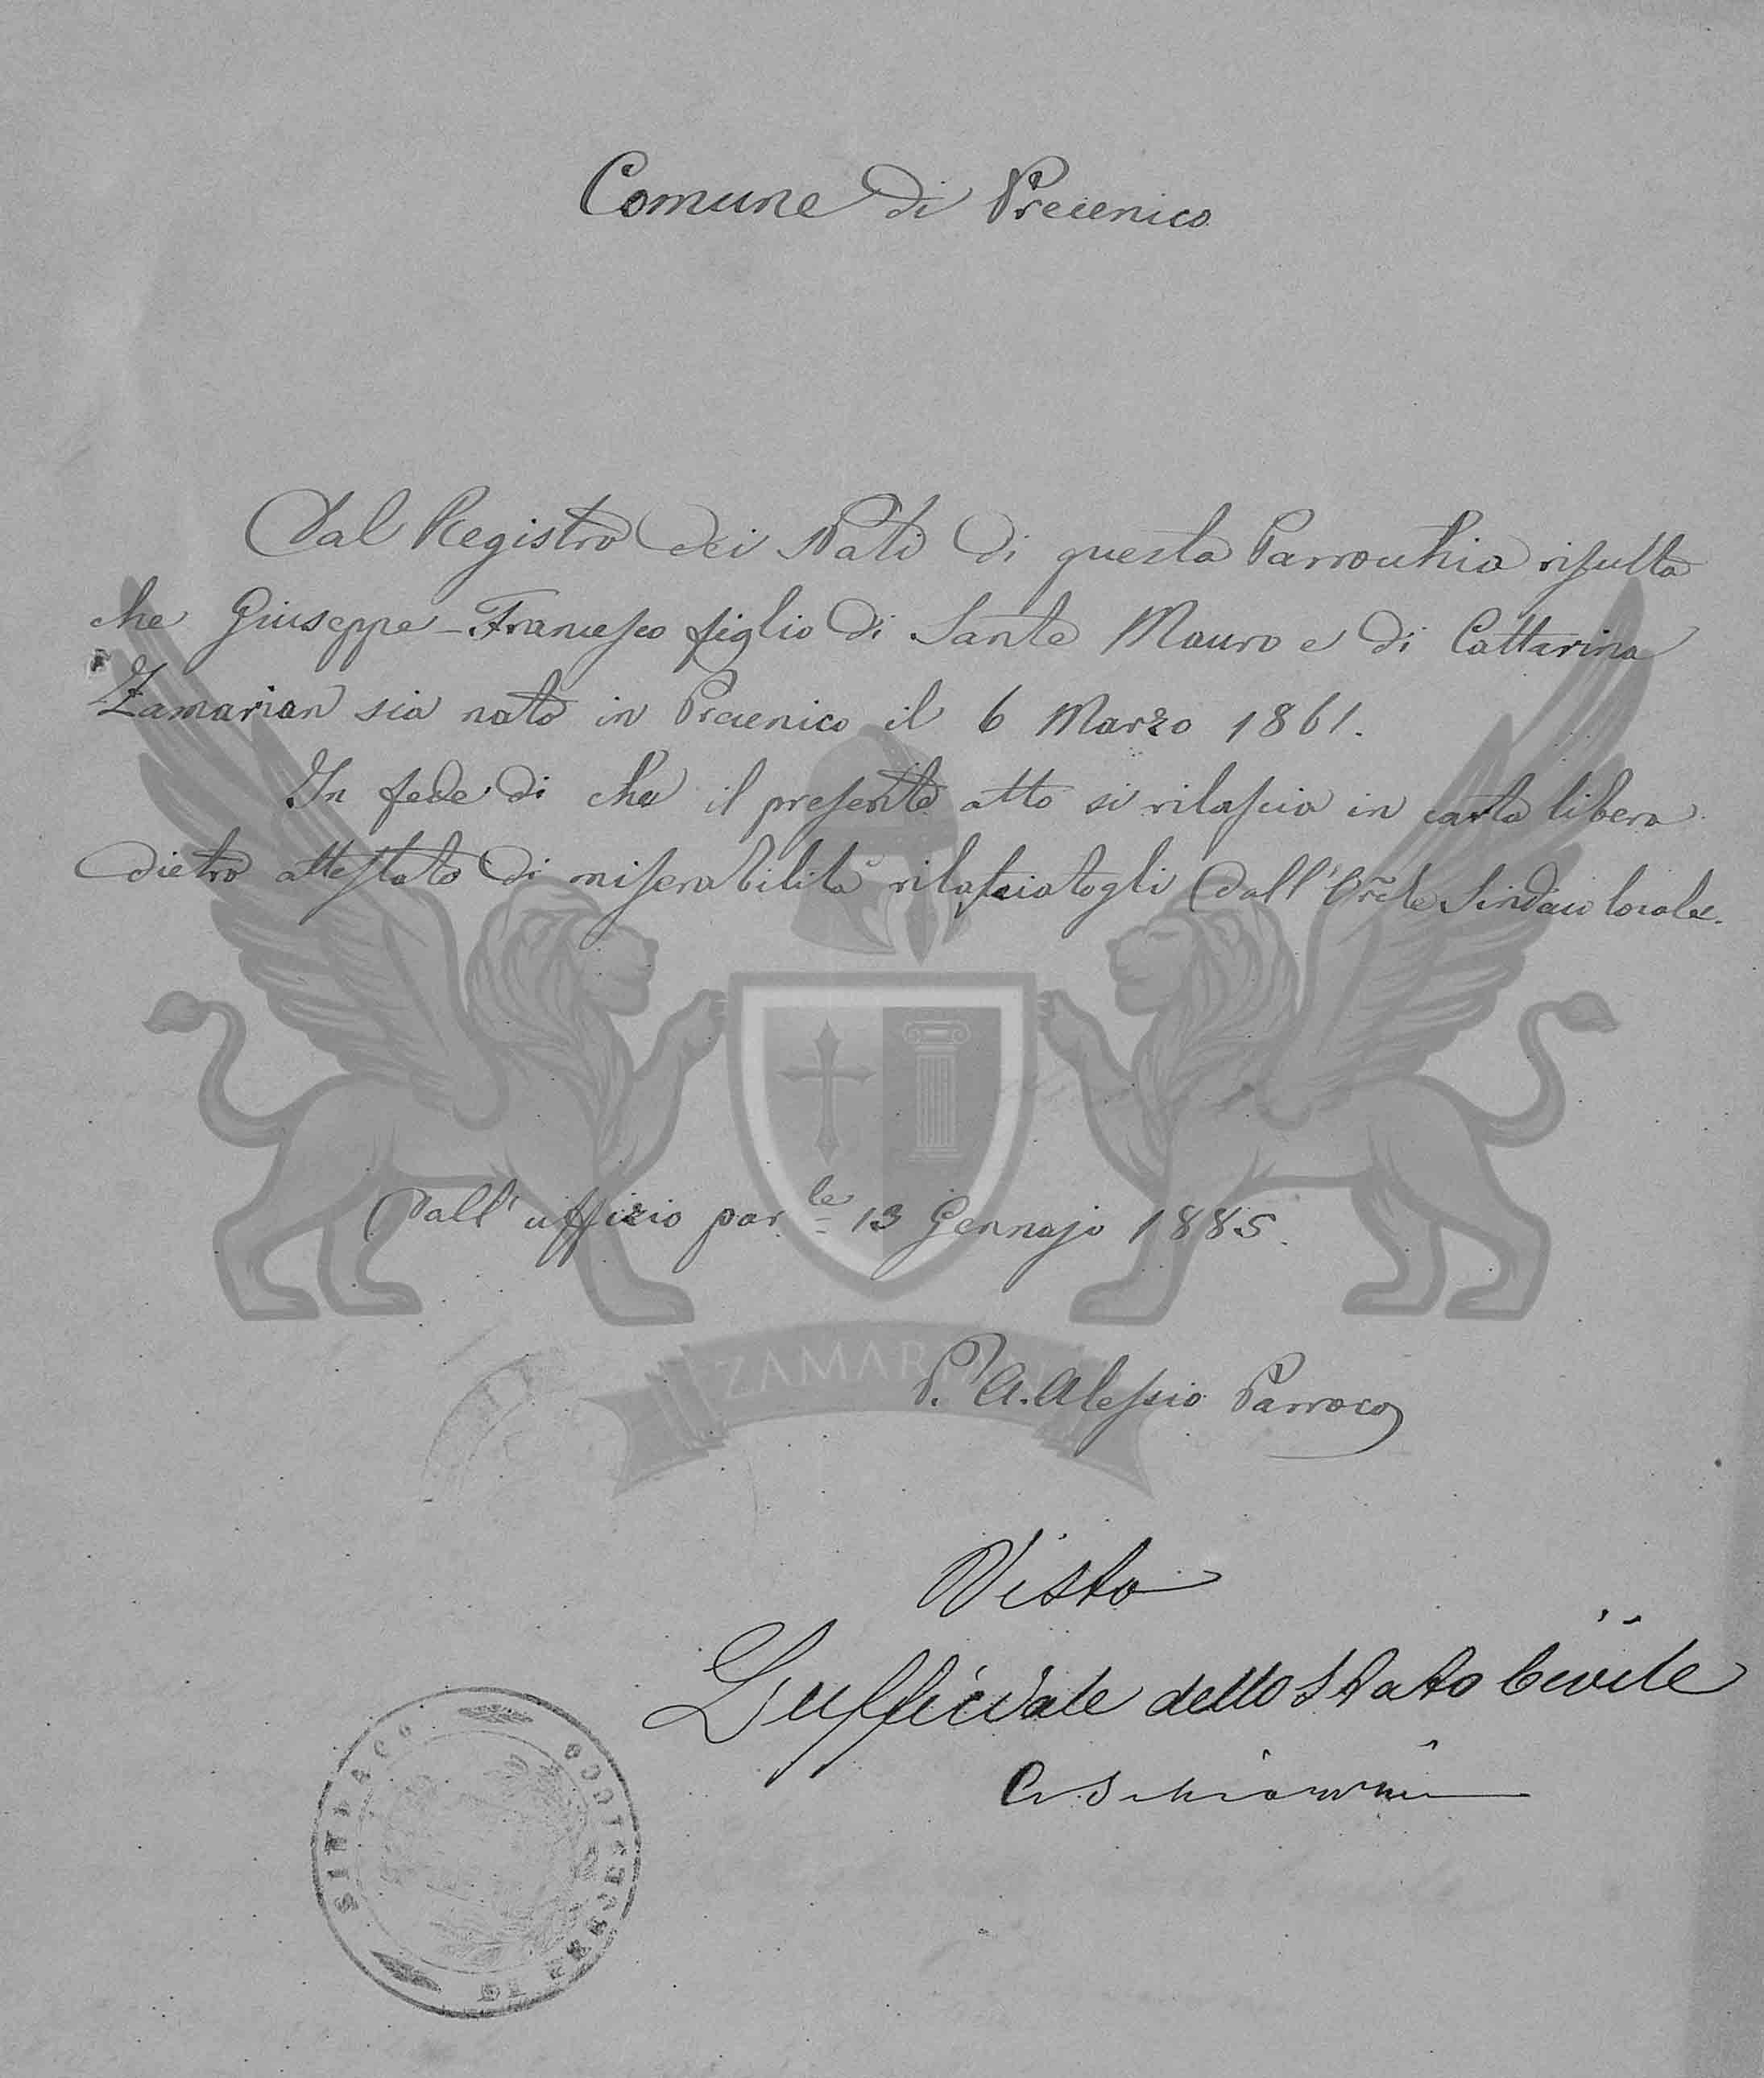 Comune di Precenico
Dal Registro dei Nati di questa Parrocchia risulta
che Giuseppe-Francesco figlio di Sante Mauro e di Cattarina
Zamarian sia nato in Precenico il 6 Marzo 1861.
In fede di che il presente atto si rilascia in carta libera
dietro attestato di miserabilità rilasciatogli dall' Sindaco locale.
Dall' uffizio par.le 13 Gennajo 1885.
ZAMAR
P. A. Alessio Parroco
Visto
L'ufficiale dello Stato Civile
SINDACO DI PRECENICO